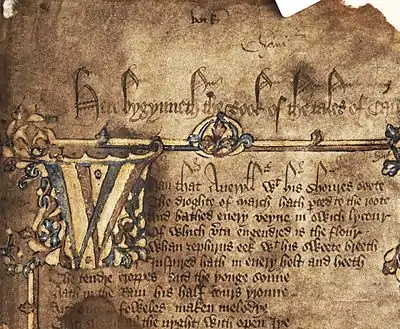 Here bygynneth the Book of the tales of Cau
Whan that Aueryll wt his shoures soote
The droghte of March hath perced to the roote
And bathed euery veyne in swich lycour
Of which vtu engendred is the flour
Whan zephirus eek wt his sweete breeth
Inspired hath in euery holt and heeth
The tendre croppes and the yonge sonne
Hath in the Ram his half cours yronne
And foweles maken melodye
al the nyght with open Iye